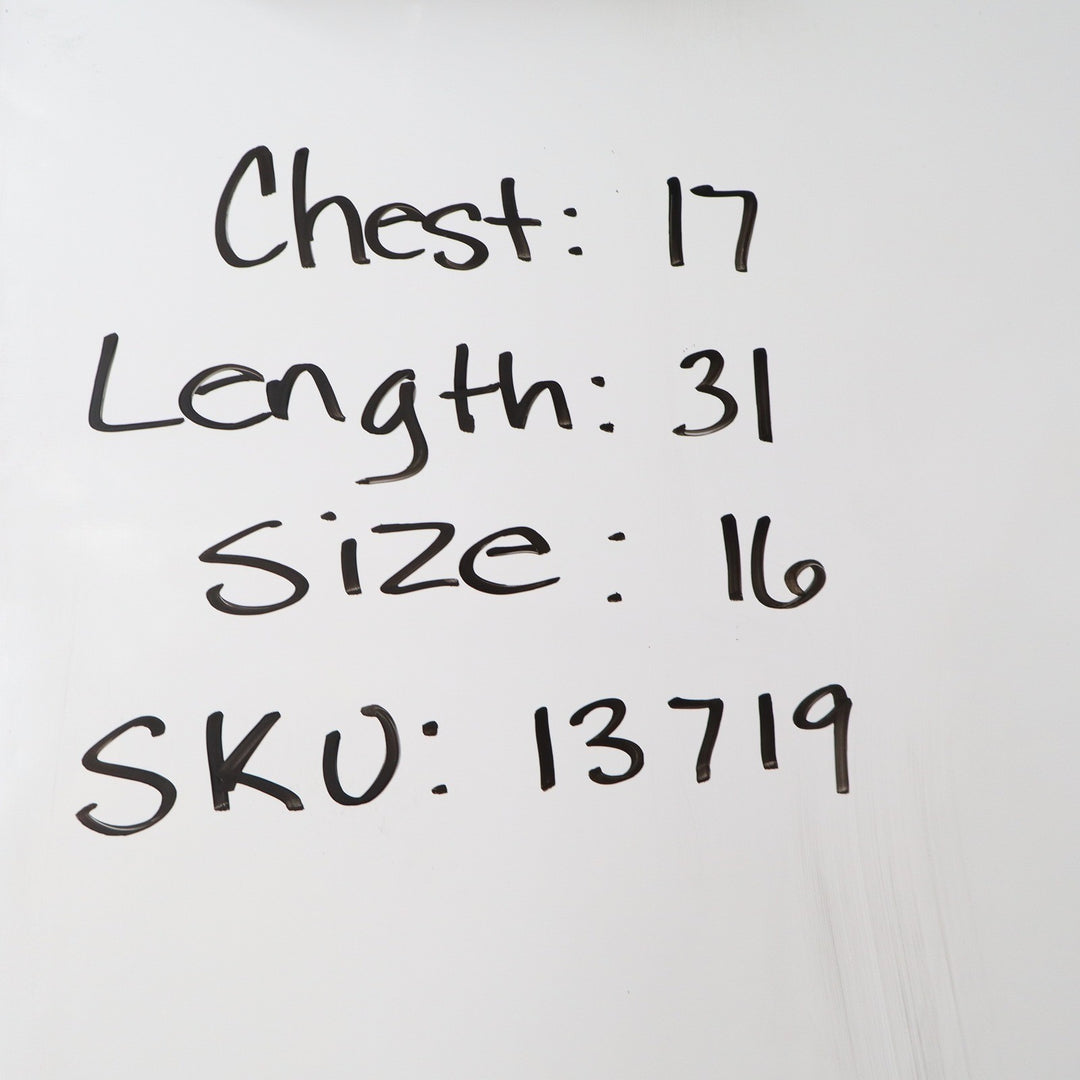 Chest: 17
Length: 31
Size: 16
SKU: 13719